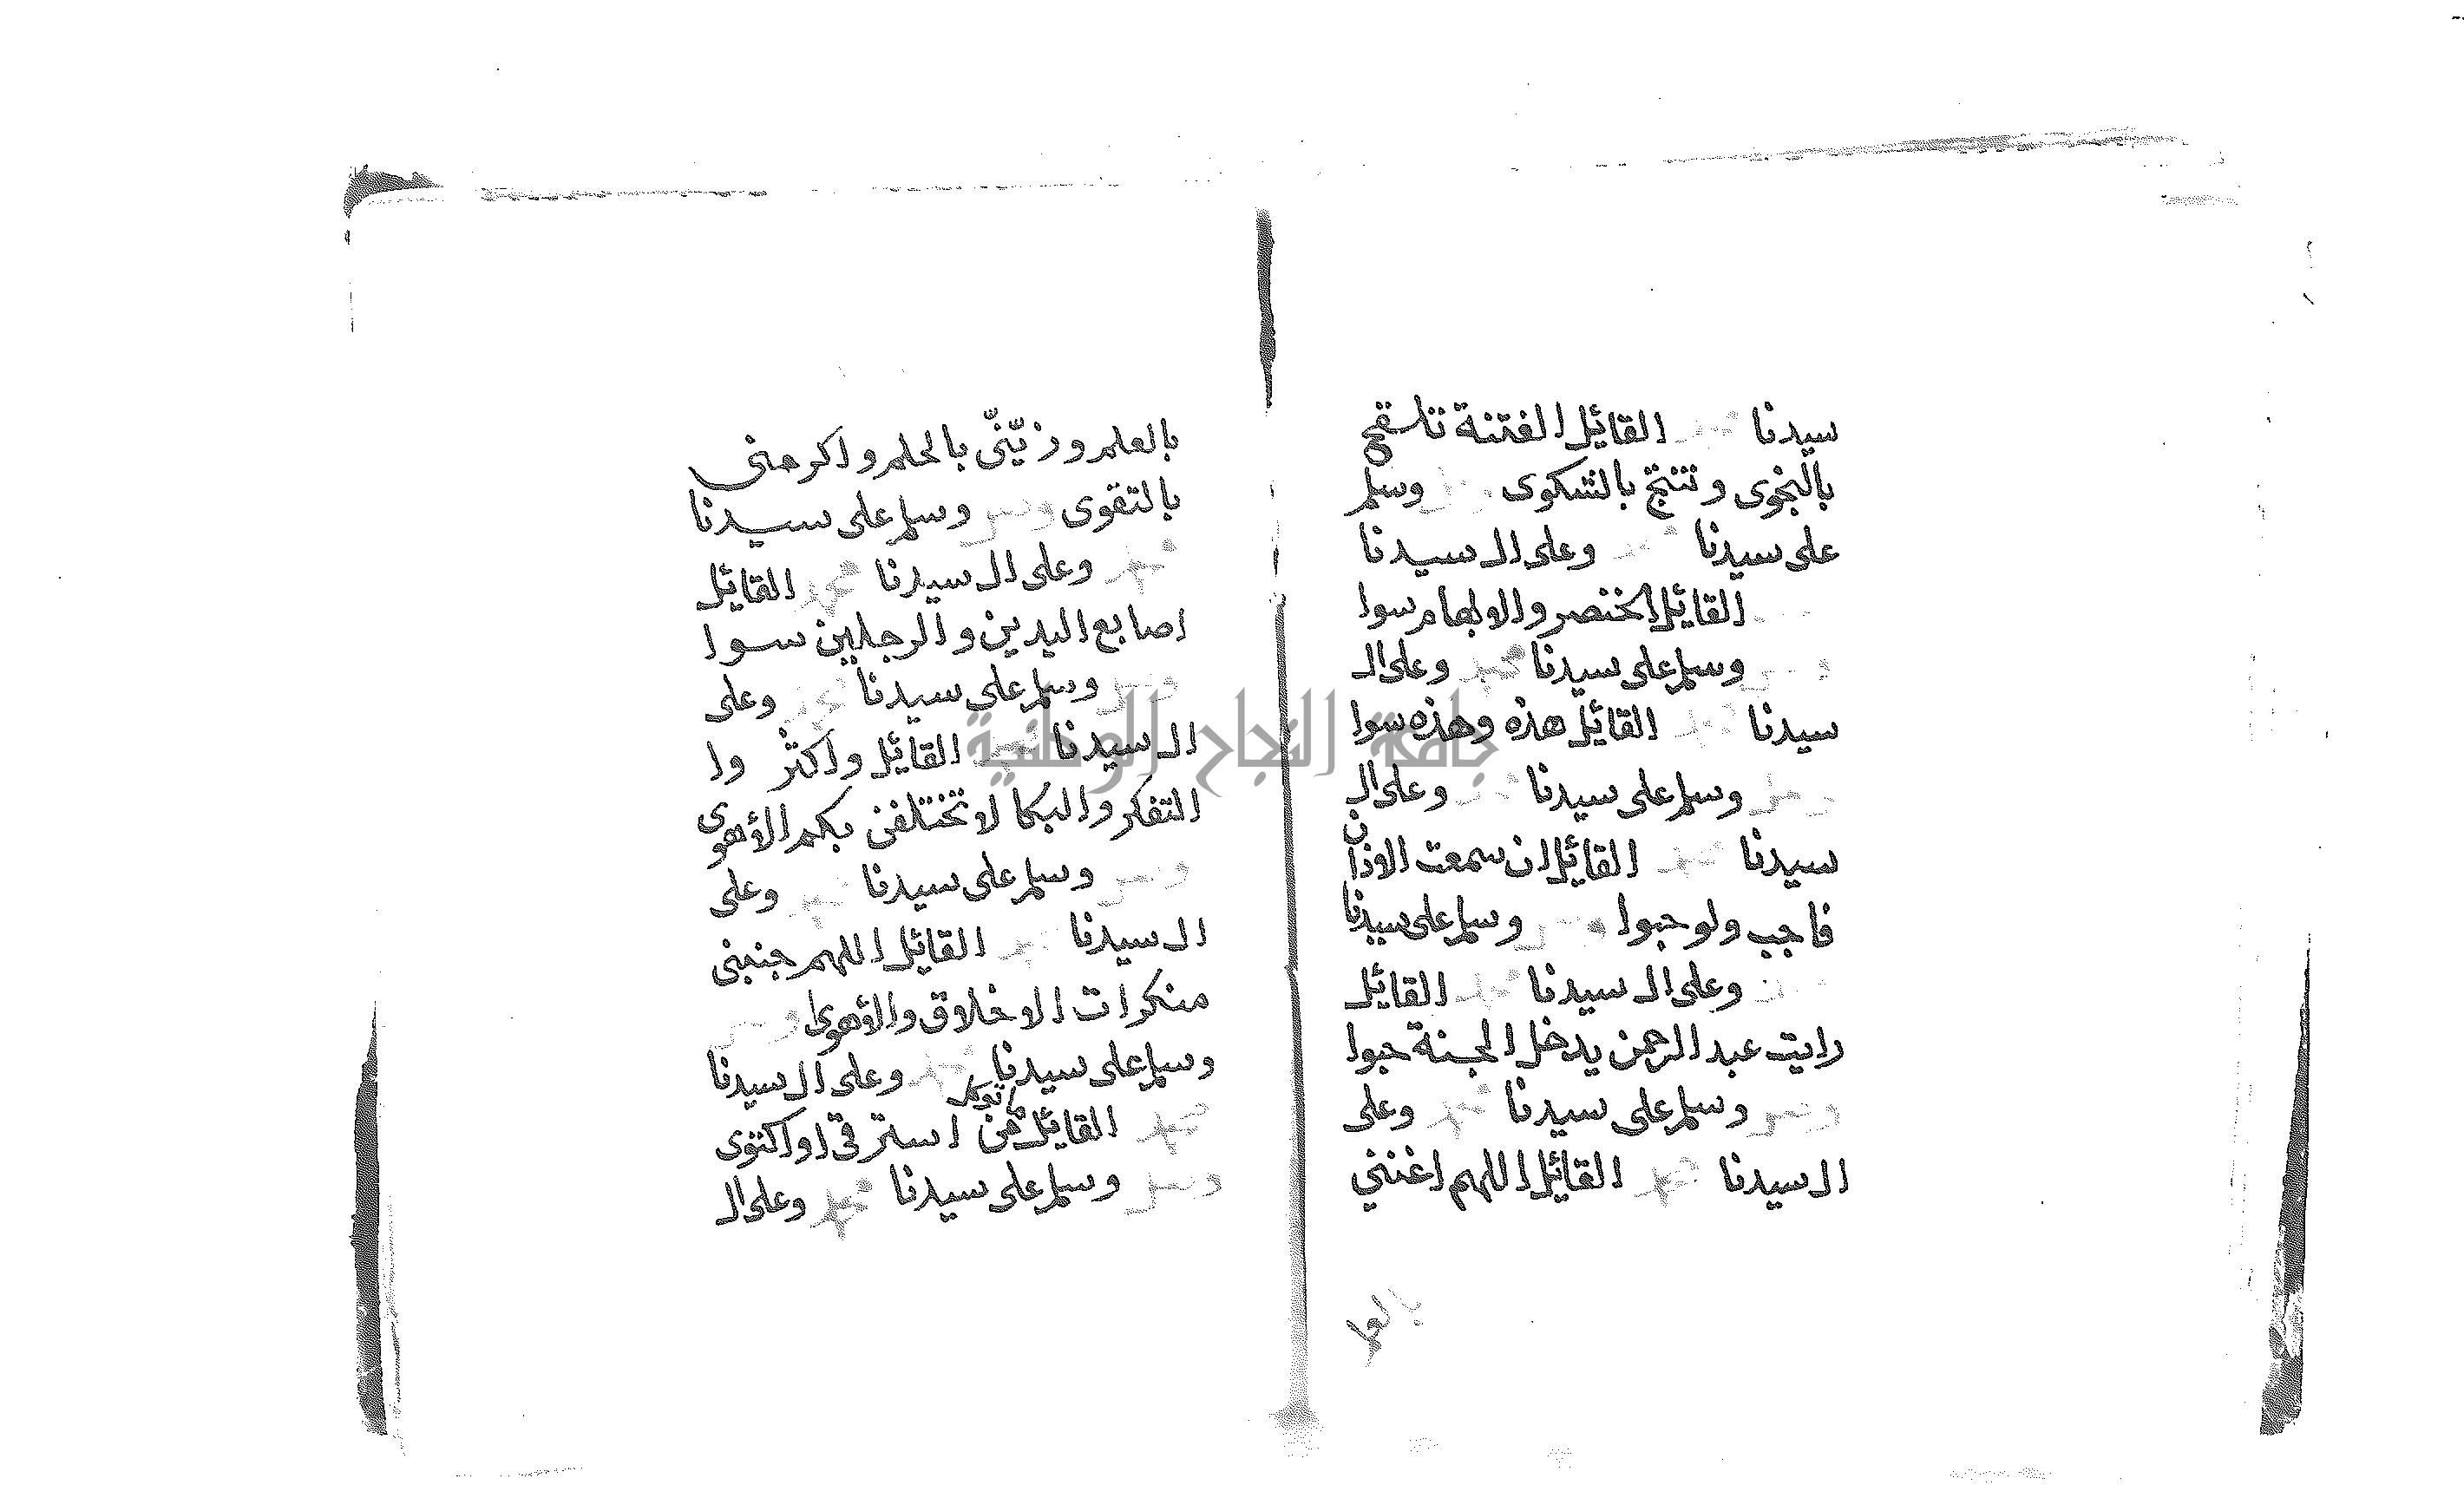 سيدنا محمد القائل الفتنة تلقح
بالنجوى وتنتج بالشكوى وسلم
على سيدنا محمد وعلى ال سيدنا
القائل الخنصر والابهام سوا
وصل وسلم على سيدنا محمد وعلى ال
سيدنا محمد القائل هذه وهذه سوا
وصل وسلم على سيدنا محمد وعلى ال
سيدنا محمد القائل ان سمعت الاذان
فاجب ولو حبوا وصل وسلم على سيدنا
وعلى ال سيدنا محمد القائل
رايت عبد الرحمن يدخل الجنة حبوا
وصل وسلم على سيدنا محمد وعلى
ال سيدنا محمد القائل اللهم اغنني
بالعلم
بالعلم وزيّنّي بالحلم واكرمني
بالتقوى وصل وسلم على سيدنا
محمد وعلى ال سيدنا محمد القائل
اصابع اليدين والرجلين سوا
وصل وسلم على سيدنا محمد وعلى
ال سيدنا محمد القائل واكثروا
التفكر والبكا لا تختلفن بكم الأهوى
وصل وسلم على سيدنا محمد وعلى
ال سيدنا محمد القائل اللهم جنبني
منكرات الاخلاق والأهوى وصل
وسلم على سيدنا محمد وعلى ال سيدنا
ما توكل
محمد القائل من استرقى او اكتوى
وصل وسلم على سيدنا محمد وعلى ال
جامعة النجاح الوطنية